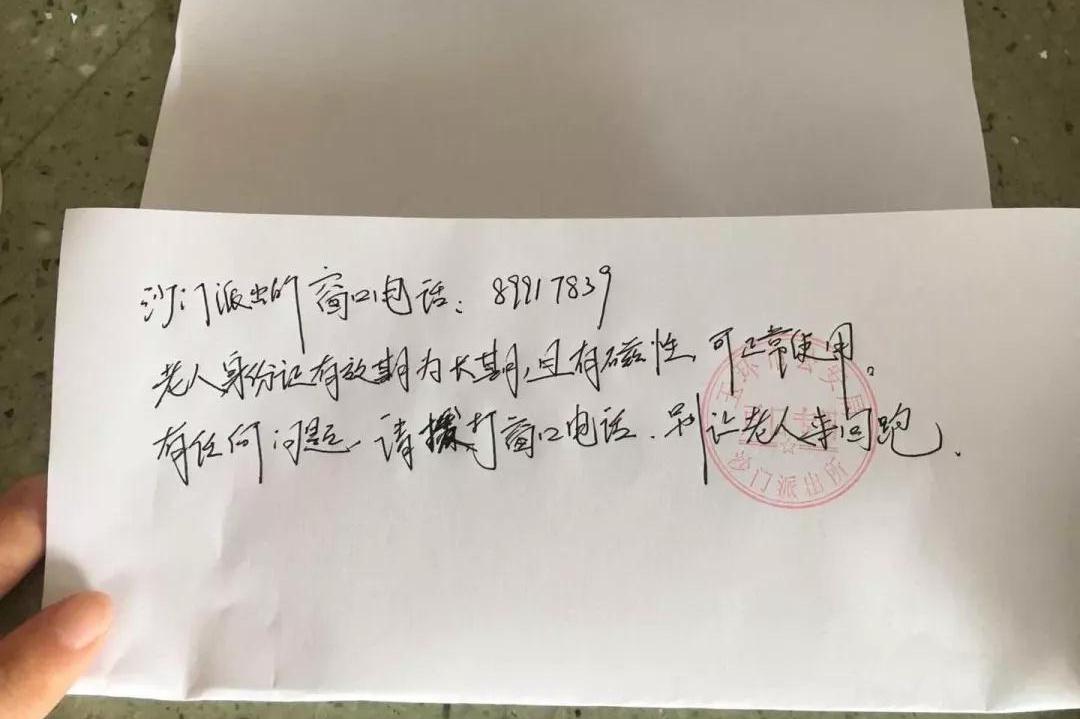 沙门派出所窗口电话：89917839
老人身份证有效期为长期，且有磁性，可正常使用。
有任何问题，请拨打窗口电话．别让老人来回跑．
玉环市公安局
沙门派出所